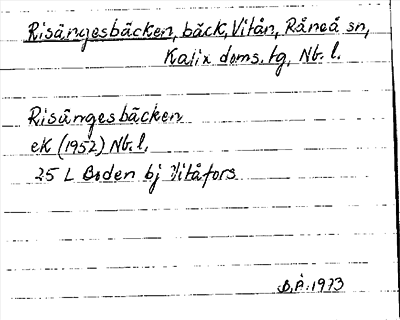 Risängesbäcken, bäck, Vitån, Råneå sn,
Kalix doms. tg, Nb. l.
Risängesbäcken
ek (1952) Nb. l.
25 L Boden bj Vitåfors
B.Å. 1973